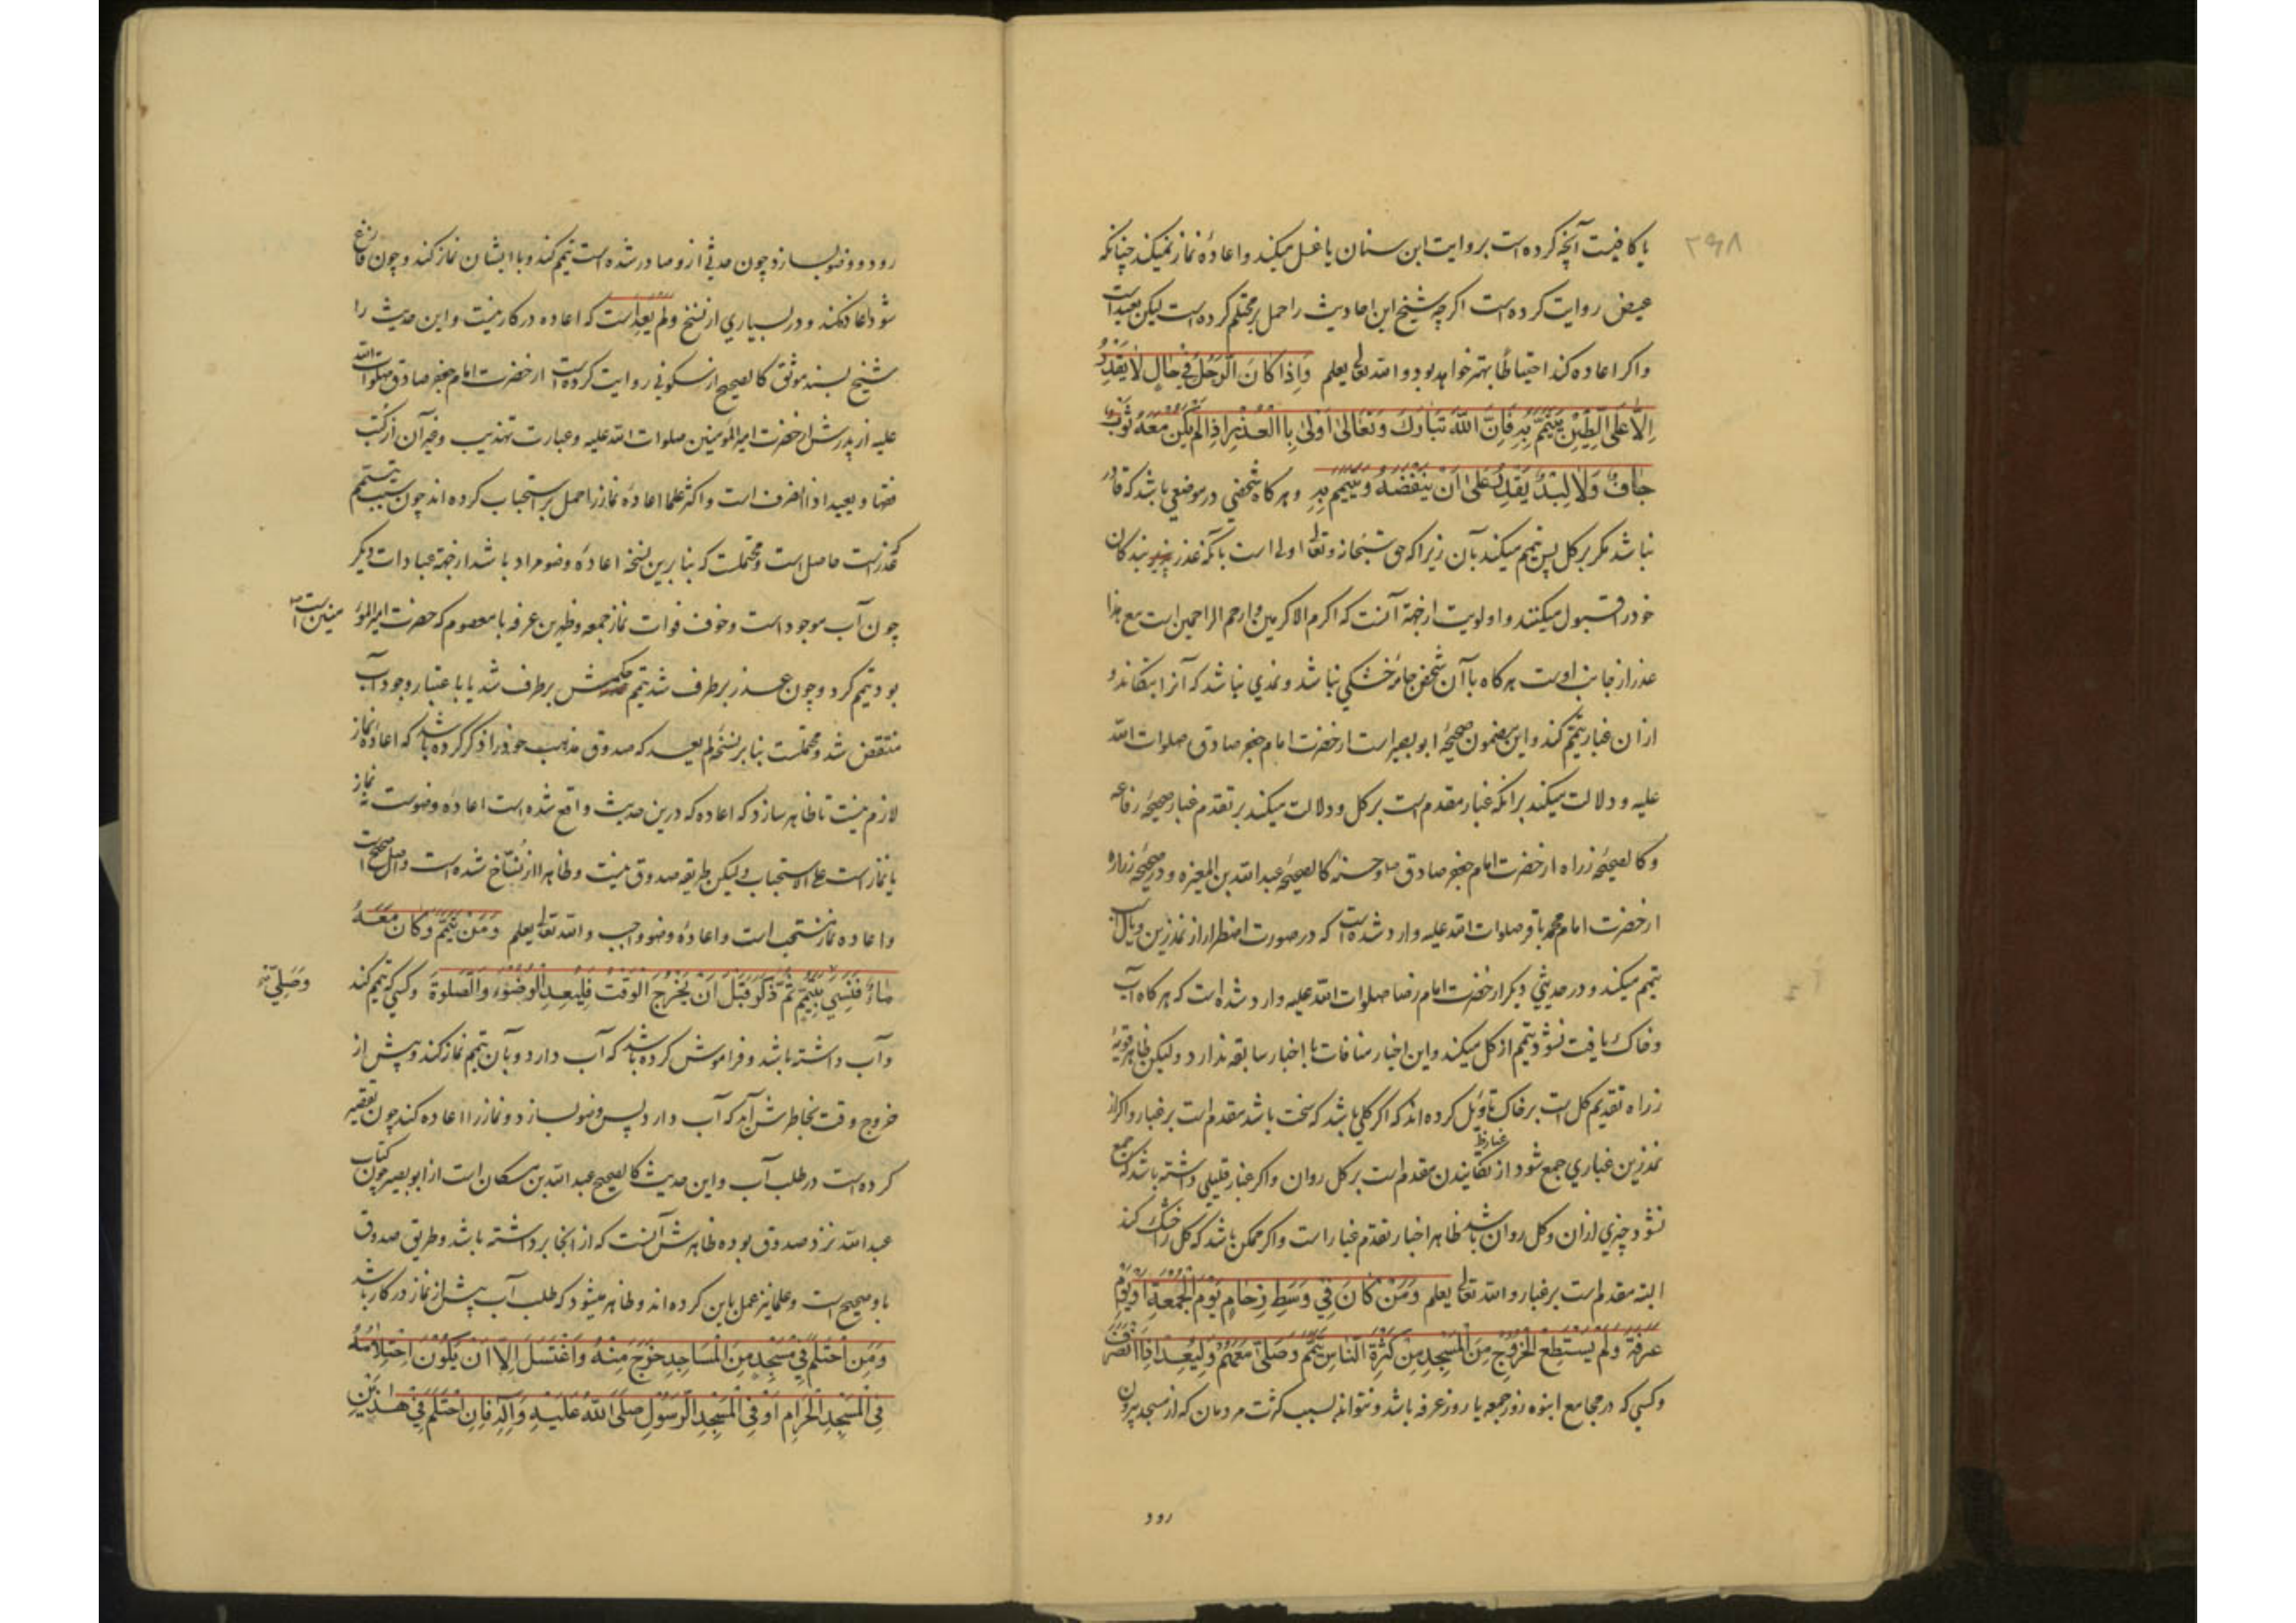 ۲۹۸
یا کافیست آنچه کرده است بروایت ابن سنان یا غسل میکند و اعادهٔ نماز نمیکند چنانکه
عیص روایت کرده است اکرچه شیخ این احادیث را حمل بر محتلم کرده است لیکن بعید است
و اکر اعاده کند احتیاطا بهتر خواهد بود و الله تعالی یعلم وَاِذا کانَ الرَّجُلُ فِی حالٍ لا یَقْدِرُ
اِلّا عَلَی الطِّینِ یَتَیَمَّمُ بِهِ فَاِنَّ اللهَ تَبارَکَ وَتَعالی اَوْلی بِالْعُذْرِ اِذا لَمْ یَکُنْ مَعَهُ ثَوْبٌ
جافٌّ وَلا لِبْدٌ یَقْدِرُ عَلی اَنْ یَنْفُضَهُ وَیَتَیَمَّمَ بِهِ و هرکاه شخصی در موضعی باشد که قادر
نباشد مکر بر کل پس تیمم میکند بآن زیرا که حق سبحانه و تعالی اولی است بآنکه عذر بندکان
خود را قبول میکند و اولویت از جهة آنست که اکرم الاکرمین و ارحم الراحمین است مع هذا
عذر از جانب اوست هرکاه با آن شخص جامهٔ خشکی نباشد و نمدی نباشد که آنرا بتکاند و
از ان غبار تیمم کند و این مضمون صحیحهٔ ابو بصیر است از حضرت امام جعفر صادق صلوات الله
علیه و دلالت میکند برانکه غبار مقدم است بر کل و دلالت میکند بر تقدم غبار صحیحهٔ رفاعه
و کالصحیحهٔ زراره از حضرت امام جعفر صادق ص و حسنهٔ کالصحیحهٔ عبد الله بن المغیره و در صحیحهٔ زراره
از حضرت امام محمد باقر صلوات الله علیه وارد شده است که در صورت اضطرار از نمد زین و یال اسب
تیمم میکند و در حدیثی دیکر از حضرت امام رضا صلوات الله علیه وارد شده است که هرکاه آب
و خاک یافت نشود تیمم از کل میکند و این اخبار منافات با اخبار سابقه ندارد و لیکن ظاهر قویهٔ
زراره تقدیم کل است بر خاک و تاویل کرده اند که اکر کلی باشد که سخت باشد مقدم است بر غبار و اکر از
نمد زین غباری جمع شود از تکانیدن مقدم است بر کل روان و اکر غبار قلیلی داشته باشد که جمع
نشود چیزی از ان و کل روان باشد ظاهر اخبار تقدم غبار است و اکر ممکن باشد که کل را خشک کند
البته مقدم است بر غبار و الله تعالی یعلم وَمَنْ کانَ فِی وَسَطِ زِحامٍ یَوْمَ الْجُمُعَةِ اَوْ یَوْمَ
عَرَفَةَ وَلَمْ یَسْتَطِعِ الْخُرُوجَ مِنَ الْمَسْجِدِ مِنْ کَثْرَةِ النّاسِ یَتَیَمَّمُ وَصَلّی مَعَهُمْ وَلْیُعِدْ اِذَا انْصَرَفَ
و کسی که در مجامع انبوه روز جمعه یا روز عرفه باشد و نتواند بسبب کثرت مردمان که از مسجد بیرون
رود
رود و وضو بسازد چون حدثی ازو صادر شده است تیمم کند و با ایشان نماز کند و چون فارغ
شود اعاده کند و در بسیاری از نسخ ولم یعد است که اعاده در کار نیست و این حدیث را
شیخ بسند موثق کالصحیح از سکونی روایت کرده است از حضرت امام جعفر صادق صلوات الله
علیه از پدرش از حضرت امیر المؤمنین صلوات الله علیه و عبارت تهذیب و غیر آن از کتب
فقها و یعید اذا انصرف است و اکثر علما اعادهٔ نماز را حمل بر استحباب کرده اند چون سبب تیمم
که عذر است حاصل است و محتملست که بنابرین نسخه اعادهٔ وضو مراد باشد از جهة عبادات دیکر
چون آب موجود است و خوف فوات نماز جمعه و ظهرین عرفه با معصوم که حضرت امیر المؤ منین است
بود تیمم کرد و چون عذر برطرف شد تیمم حکمش برطرف شد یا باعتبار وجود آب
منتقض شد و محتملست بنابر نسخهٔ لم یعد که صدوق مذهب خود را ذکر کرده باشد که اعادهٔ نماز
لازم نیست تا ظاهر سازد که اعاده که درین حدیث واقع شده است اعادهٔ وضوست نه نماز
یا نماز است علی الاستحباب و لیکن طریقهٔ صدوق نیست و ظاهرا از نساخ شده است و اصل صحیح است
و اعاده نماز مستحب است و اعادهٔ وضو واجب و الله تعالی یعلم وَمَنْ تَیَمَّمَ وَکانَ مَعَهُ
ماءٌ فَنَسِیَ تَیَمَّمَ ثُمَّ ذَکَرَ قَبْلَ اَنْ یَخْرُجَ الْوَقْتُ فَلْیُعِدِ الْوُضُوءَ وَالصَّلوةَ و کسی که تیمم کند
وَصَلّی
و آب داشته باشد و فراموش کرده باشد که آب دارد و بآن تیمم نماز کند و پیش از
خروج وقت بخاطرش آید که آب دارد پس وضو بسازد و نماز را اعاده کند چون تقصیر
کرده است در طلب آب و این حدیث کالصحیح عبد الله بن مسکان است از ابو بصیر چون کتاب
عبد الله نزد صدوق بوده ظاهرش آنست که از انجا برداشته باشد و طریق صدوق
باو صحیح است و علما نیز عمل باین کرده اند و ظاهر میشود که طلب آب پیش از نماز در کار باشد
وَمَنِ احْتَلَمَ فِی مَسْجِدٍ مِنَ الْمَساجِدِ خَرَجَ مِنْهُ وَاغْتَسَلَ اِلّا اَنْ یَکُونَ احْتِلامُهُ
فِی الْمَسْجِدِ الْحَرامِ اَوْ فِی الْمَسْجِدِ الرَّسُولِ صَلَّی اللهُ عَلَیْهِ وَآلِهِ فَاِنِ احْتَلَمَ فِی هذَیْنِ